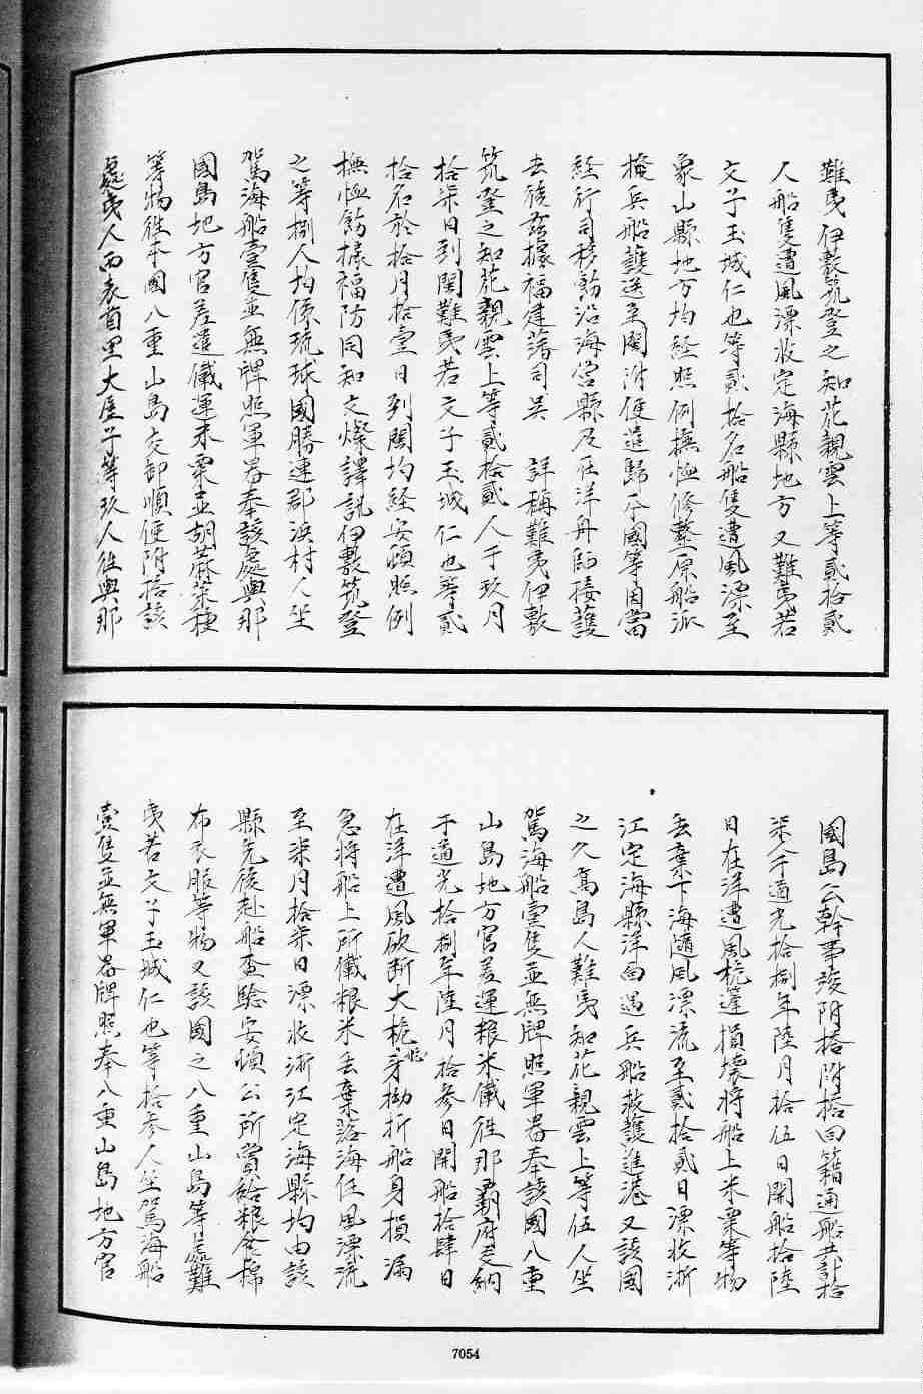 難夷伊敷筑登之知花親雲上等貳拾貳
人船隻遭風漂收定海縣地方又難夷若
文子玉城仁也等貳拾名船隻遭風漂至
象山縣地方均經照例撫恤修整原船派
撥兵船護送至閩附便遣歸本國等因當
經行司移飭沿海營縣及在洋舟師接護
去後茲據福建藩司吳 詳稱難夷伊敷
筑登之知花親雲上等貳拾貳人于玖月
拾柒日到閩難夷若文子玉城仁也等貳
拾名於拾月拾壹日到閩均經安頓照例
撫恤飭據福防同知文燦譯訊伊敷筑登
之等捌人均係琉球國勝連郡濱村人坐
駕海船壹隻並無牌照軍器奉該處與那
國島地方官差遣儎運米粟並胡蔴菜種
等物往本國八重山島交卸順便附搭該
處夷人西表首里大屋子等玖人往與那
國島公幹事竣附搭附搭回籍通船共計拾
柒人于道光拾捌年陸月拾伍日開船拾陸
日在洋遭風桅篷損壞將船上米粟等物
丟棄下海隨風漂流至貳拾貳日漂收浙
江定海縣洋面遇兵船救護進港又該國
之久高島人難夷知花親雲上等伍人坐
駕海船壹隻並無牌照軍器奉該國八重
山島地方官差運粮米儎往那霸府交納
于道光拾捌年陸月拾參日開船拾肆日
在洋遭風砍断大桅舵牙拗折船身損漏
急將船上所儎粮米丟棄落海任風漂流
至柒月拾柒日漂收浙江定海縣均由該
縣先後赴船查驗安頓公所賞給粮食棉
布衣服等物又該國之八重山島等處難
夷若文子玉城仁也等拾参人坐駕海船
壹隻並無軍器牌照奉八重山島地方官
7054